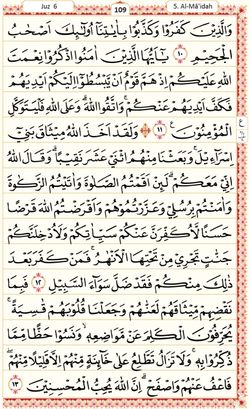 Juz 6 109 5. Al-Mâ'idah
وَالَّذِيْنَ كَفَرُوْا وَكَذَّبُوْا بِاٰيٰتِنَاۤ اُولٰٓئِكَ اَصْحٰبُ
الْجَحِيْمِ ١٠ يٰۤاَيُّهَا الَّذِيْنَ اٰمَنُوا اذْكُرُوْا نِعْمَتَ
اللّٰهِ عَلَيْكُمْ اِذْ هَمَّ قَوْمٌ اَنْ يَّبْسُطُوْۤا اِلَيْكُمْ اَيْدِيَهُمْ
فَكَفَّ اَيْدِيَهُمْ عَنْكُمْۚ وَاتَّقُوا اللّٰهَؕ وَعَلَى اللّٰهِ فَلْيَتَوَكَّلِ
الْمُؤْمِنُوْنَ ١١ وَلَقَدْ اَخَذَ اللّٰهُ مِيْثَاقَ بَنِيْۤ
اِسْرَآءِيْلَۚ وَبَعَثْنَا مِنْهُمُ اثْنَيْ عَشَرَ نَقِيْبًاؕ وَقَالَ اللّٰهُ
اِنِّيْ مَعَكُمْؕ لَئِنْ اَقَمْتُمُ الصَّلٰوةَ وَاٰتَيْتُمُ الزَّكٰوةَ
وَاٰمَنْتُمْ بِرُسُلِيْ وَعَزَّرْتُمُوْهُمْ وَاَقْرَضْتُمُ اللّٰهَ قَرْضًا
حَسَنًا لَّاُكَفِّرَنَّ عَنْكُمْ سَيِّاٰتِكُمْ وَلَاُدْخِلَنَّكُمْ
جَنّٰتٍ تَجْرِيْ مِنْ تَحْتِهَا الْاَنْهٰرُۚ فَمَنْ كَفَرَ بَعْدَ
ذٰلِكَ مِنْكُمْ فَقَدْ ضَلَّ سَوَآءَ السَّبِيْلِ ١٢ فَبِمَا
نَقْضِهِمْ مِّيْثَاقَهُمْ لَعَنّٰهُمْ وَجَعَلْنَا قُلُوْبَهُمْ قٰسِيَةًۚ
يُحَرِّفُوْنَ الْكَلِمَ عَنْ مَّوَاضِعِهٖۙ وَنَسُوْا حَظًّا مِّمَّا
ذُكِّرُوْا بِهٖۚ وَلَا تَزَالُ تَطَّلِعُ عَلٰى خَآئِنَةٍ مِّنْهُمْ اِلَّا قَلِيْلًا مِّنْهُمْ
فَاعْفُ عَنْهُمْ وَاصْفَحْؕ اِنَّ اللّٰهَ يُحِبُّ الْمُحْسِنِيْنَ ١٣